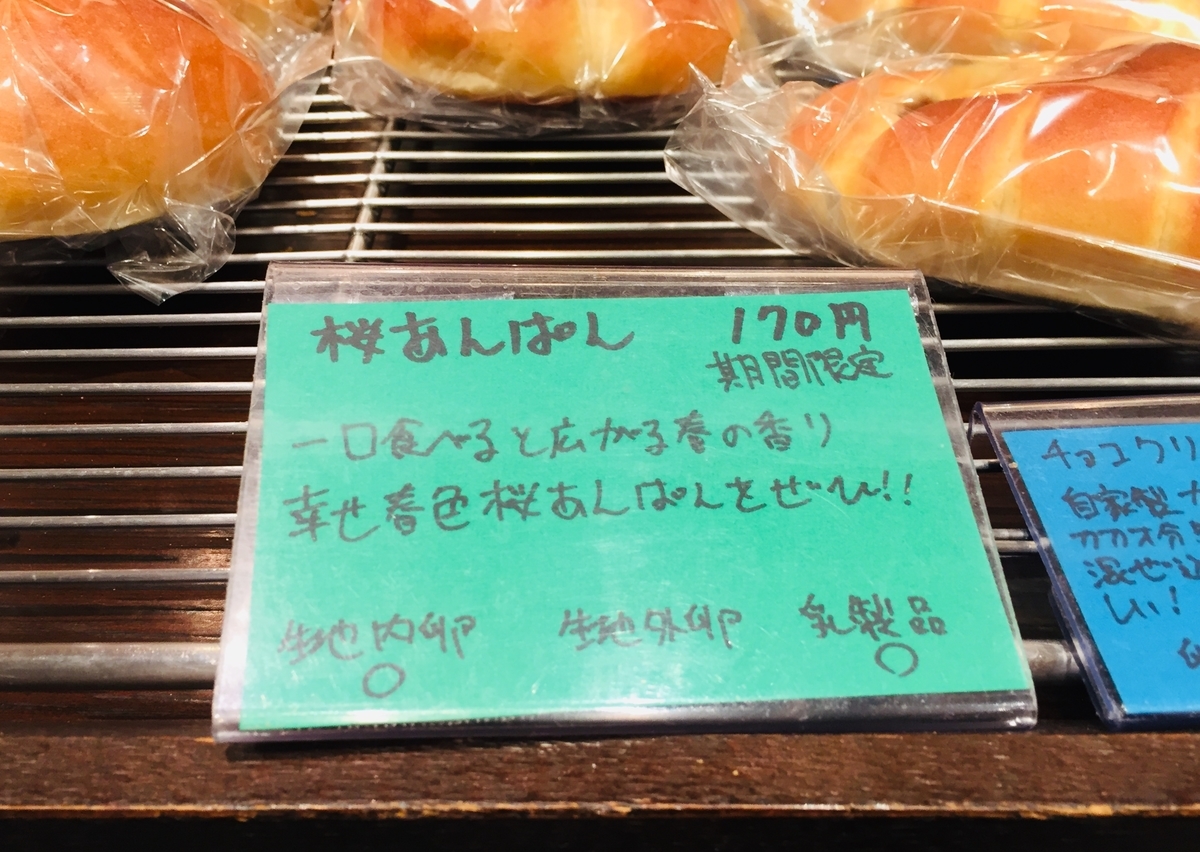 桜あんぱん 170円
期間限定
一口食べると広がる春の香り
幸せ春色桜あんぱんをぜひ!!
生地内卵 生地外卵 乳製品
○ ○
チョコクリ
自家製
カカオ分
混ぜ込
しい!